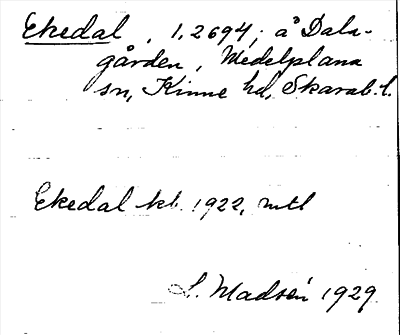 Ekedal, 1,2694; å Dala-
gården, Medelplana
sn, Kinne hd, Skarab. l.
Ekedal kb. 1922, mtl
S. Madsén 1929